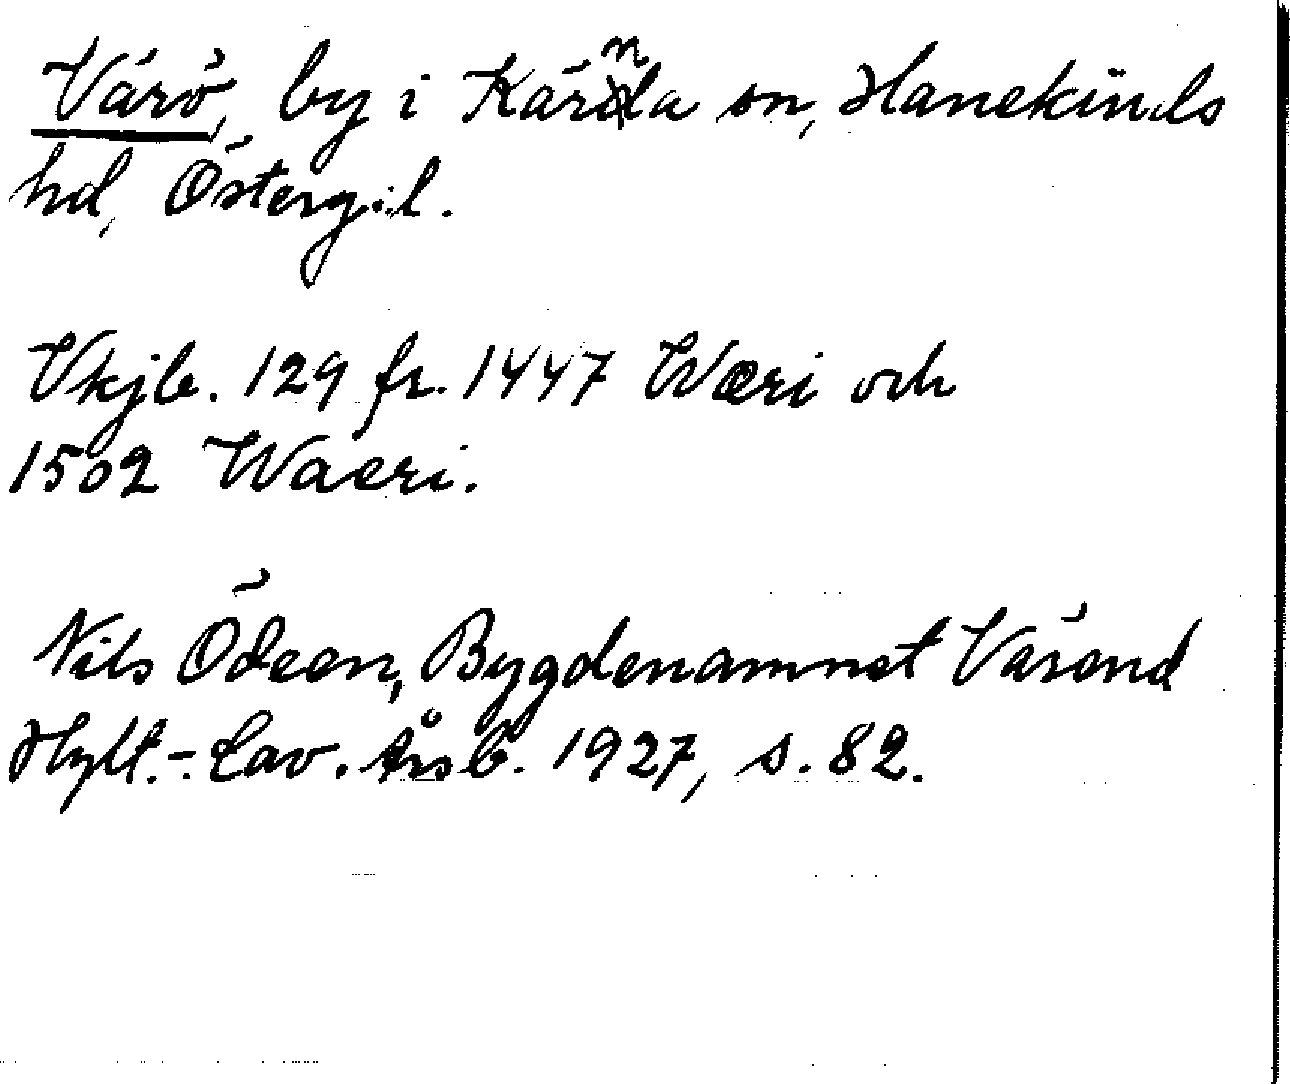 Värö, by i Kärna sn, Hanekinds
hd, Östergöl.
Vkjb. 129 fr. 1447 Wæri och
1502 Waeri.
Nils Ödeen, Bygdenamnet Värend
Hylt.-Cav. Årsb. 1927, s. 82.